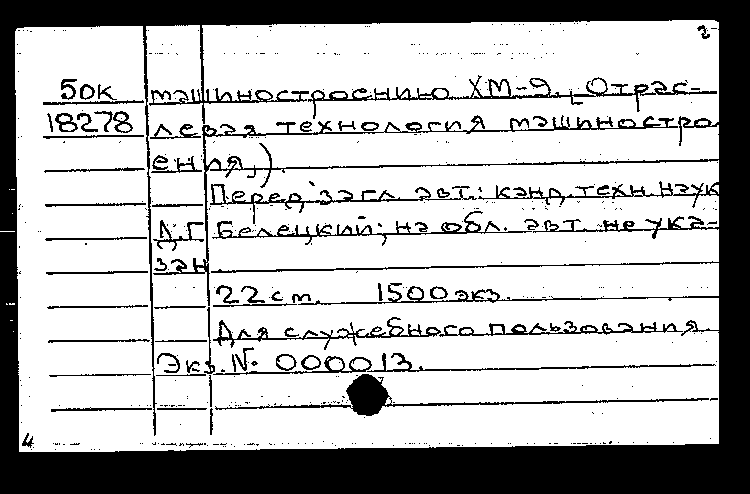 2
50к машиностроению ХМ-9. „Отрас-
18278 левая технология машиностро
ения„).
Перед загл. авт.: канд. техн. наук
Д.Г. Белецкий; на обл. авт. не ука-
зан.
22 cm. 1500 экз.
Для служебного пользования.
Экз. № 000013.
4